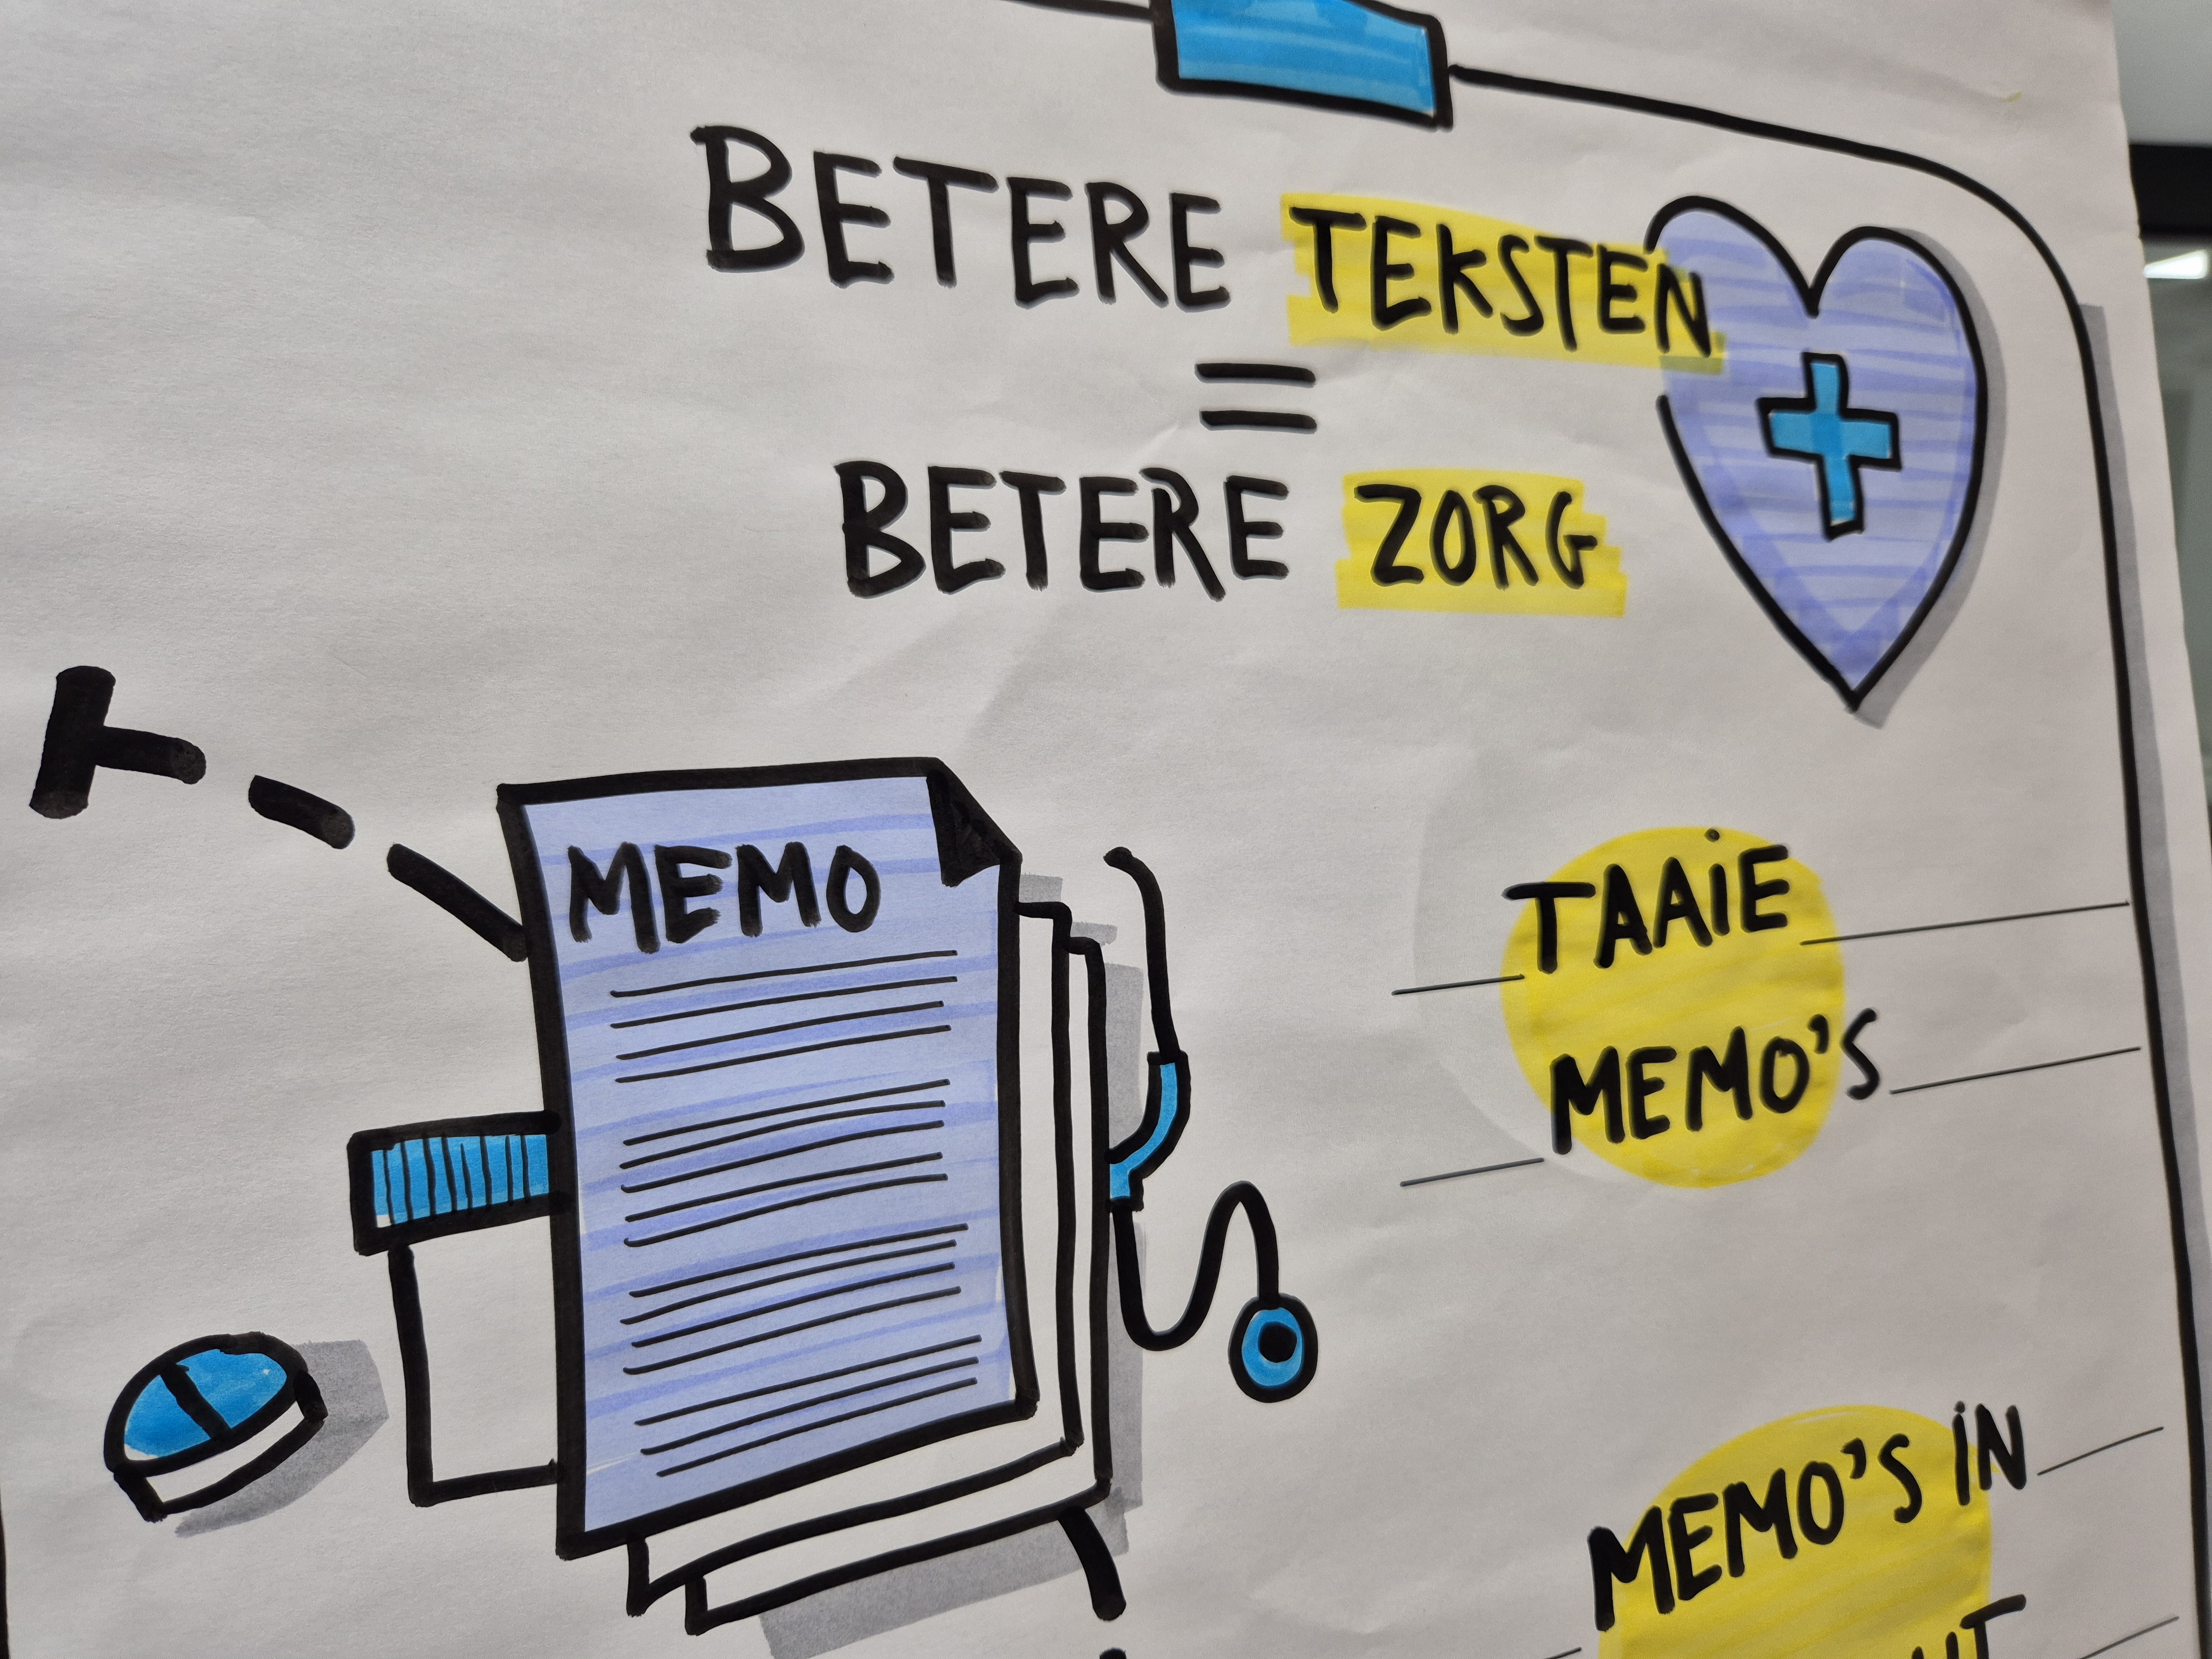 BETERE TEKSTEN
=
BETERE ZORG
MEMO
TAAIE
MEMO'S
MEMO'S IN